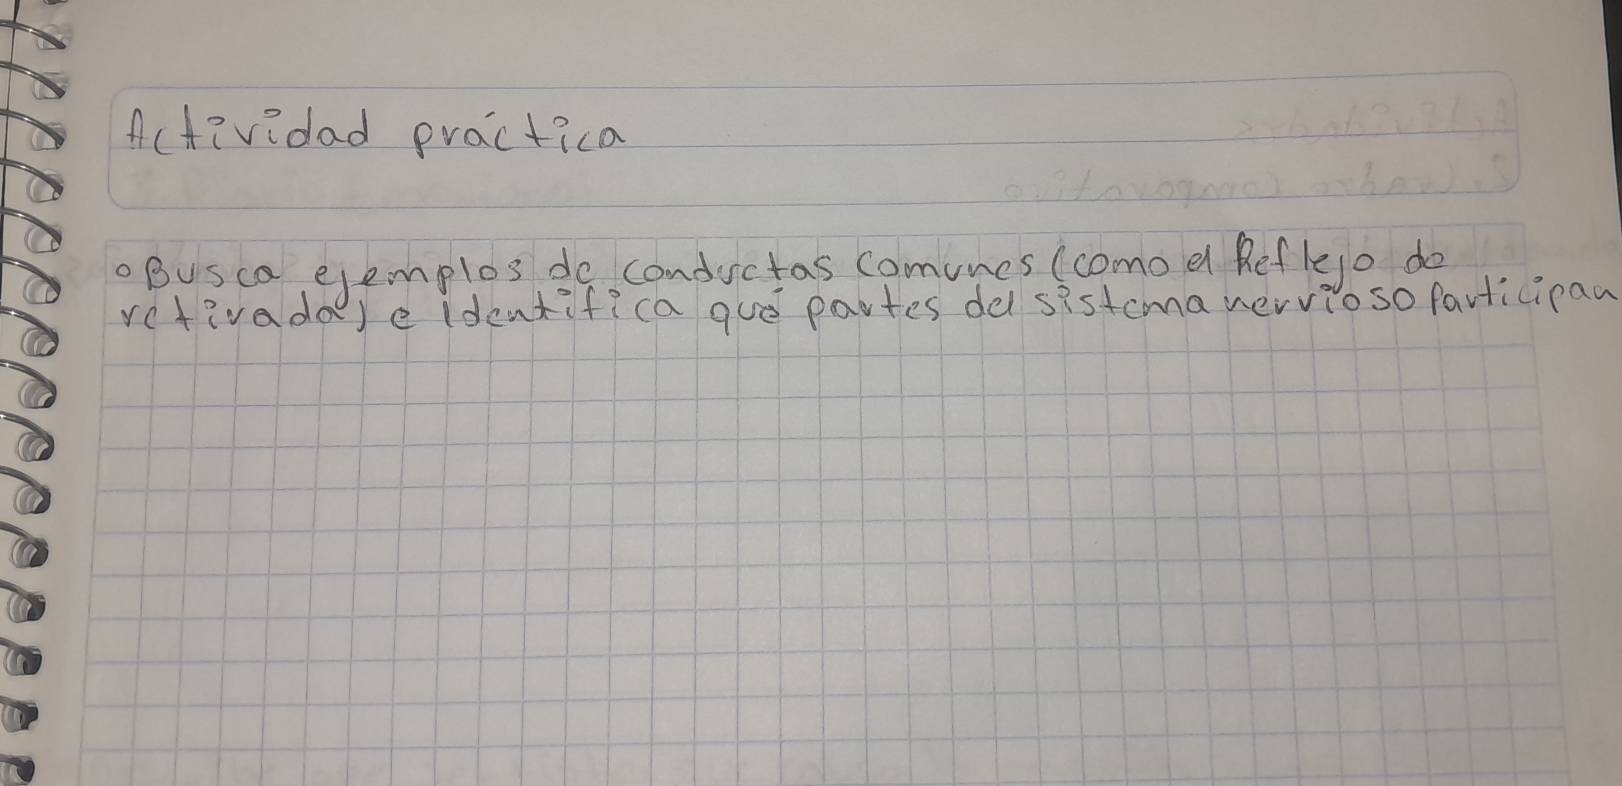 Actividad práctica
o Busca ejemplos de conductas comunes (como el Reflejo de
retirada) e identifica qué partes del sistema nervioso participan